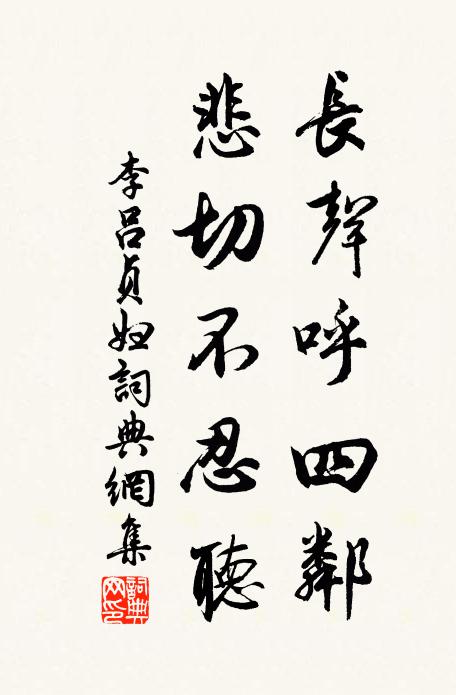 長聲呼四鄰
悲切不忍聽
李呂貞婦詞典網集
詞典網印